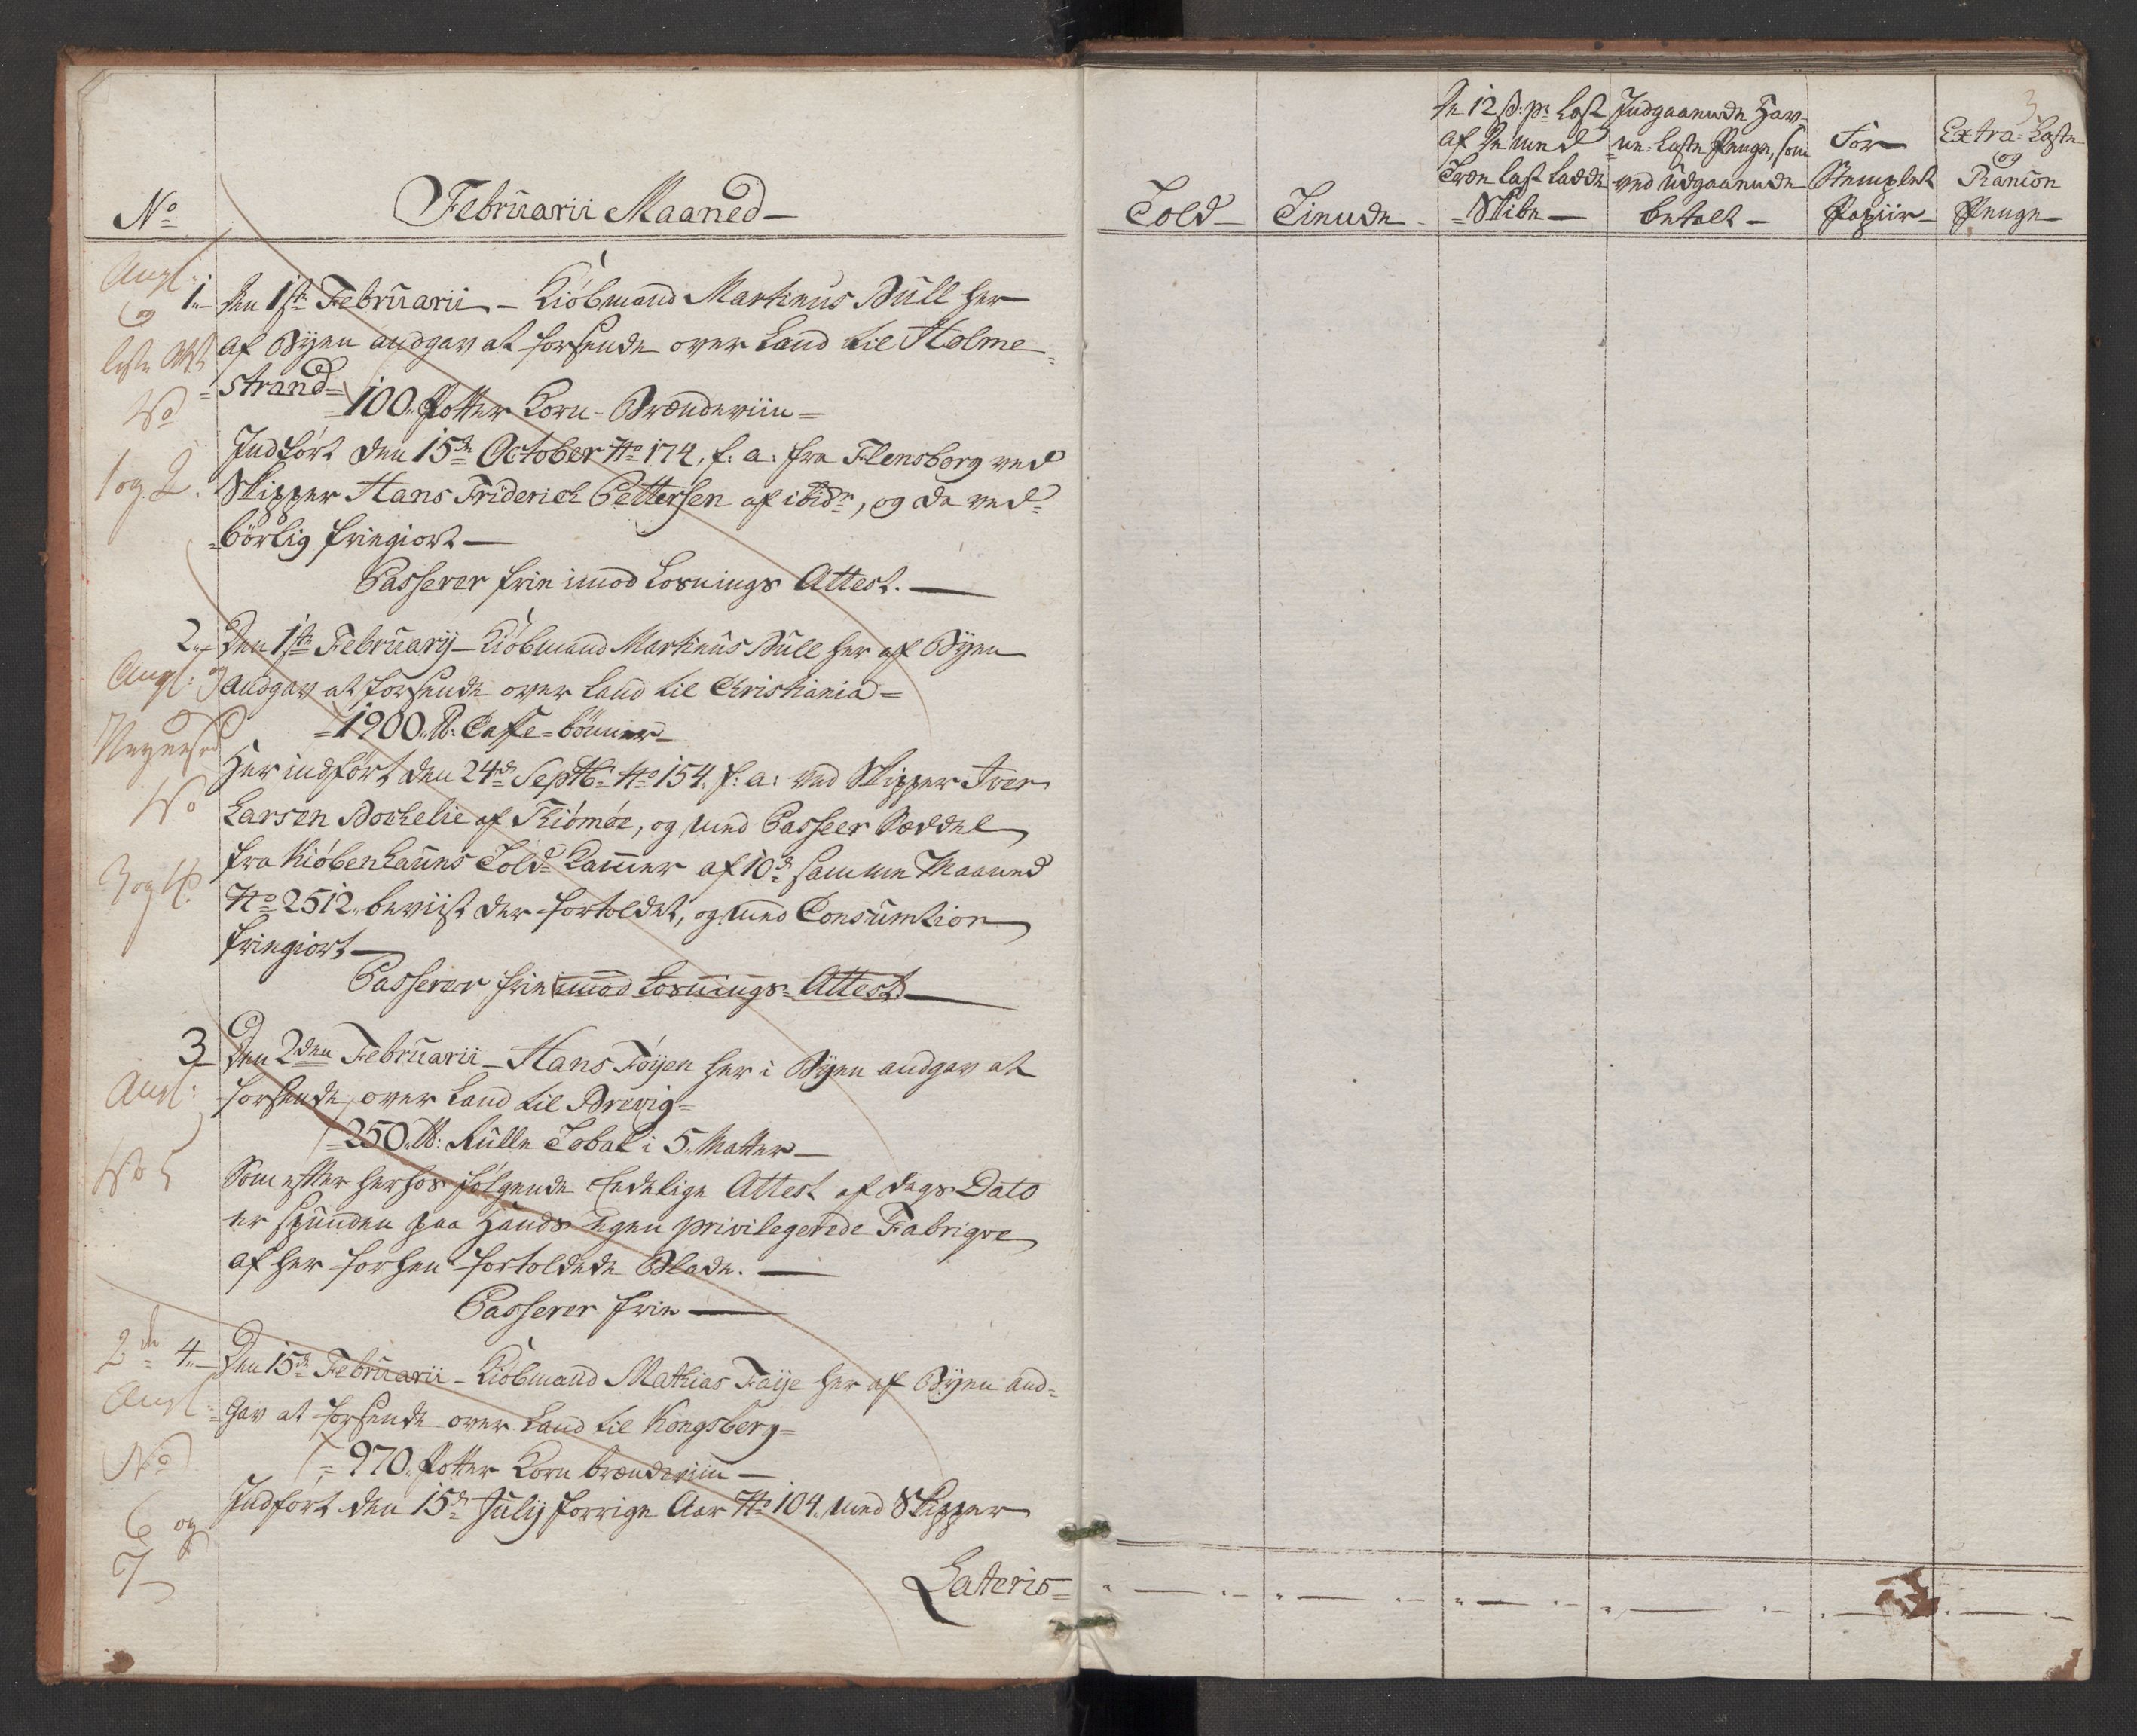 No
Februarii Maaned
Angl
og
Liste Att
No
1 og 2.
1. Den 1ste Februarii - Kiöbmand Martinus Bull her
af Byen angav at forsende over Land til Holme=
=strand=
=100. Potter Korn-Brændeviin=
Indført den 15de October No 174. f: a: fra Flensborg ved
Skipper Hans Friderich Pettersen af ibidm, og da ved=
=börlig friegiort
Passerer frie imod Losnings Attest.
2. Den 1ste Februarij - Kiöbmand Martinus Bull her af Byen
Angl: og
angav at forsende over Land til Christiania=
=1900. lb: Caffe=bönner
No
3 og 4.
Her indført den 24de Septbr No 154. f: a: ved Skipper Iver
Larsen Bochelie af Tiömöe, og med Passeer Seddel
fra Kiöbenhauns Told-Kammer af 10de samme Maaned
No 2512. beviist der fortoldet, og med Consumtion
friegiort
Passerer frie imod Losnings-Attest
3 Den 2den Februarii - Hans Föyen her i Byen angav at
Angl:
forsende over Land til Brevig=
=250. lb: Rulle Tobak i 5. Matter
No 5
Som efter herhos følgende Eedelige Attest af dags Dato
er spunden paa Hands egen privilegerede Fabriqve
af her forhen fortoldede Blade.
Passerer frie
2de
Angl:
No
6 og
7
4. Den 15de Februarii - Kiöbmand Mathias Faije her af Byen an=
gav at forsende over Land til Kongsberg=
=970. Potter Korn brændeviin
Indført den 15de Julij forrige Aar No 104. med Skipper
Lateris=
3
Told
Tiende
De 12 s: pr Last
af de med
Træelast ladde
=Skibe
Indgaaende Hav=
ne-Laste Penge, som
ved Udgaaende
betalt
For
Stemplet
Papiir
Extra-Laste
og
Rancon
Penge